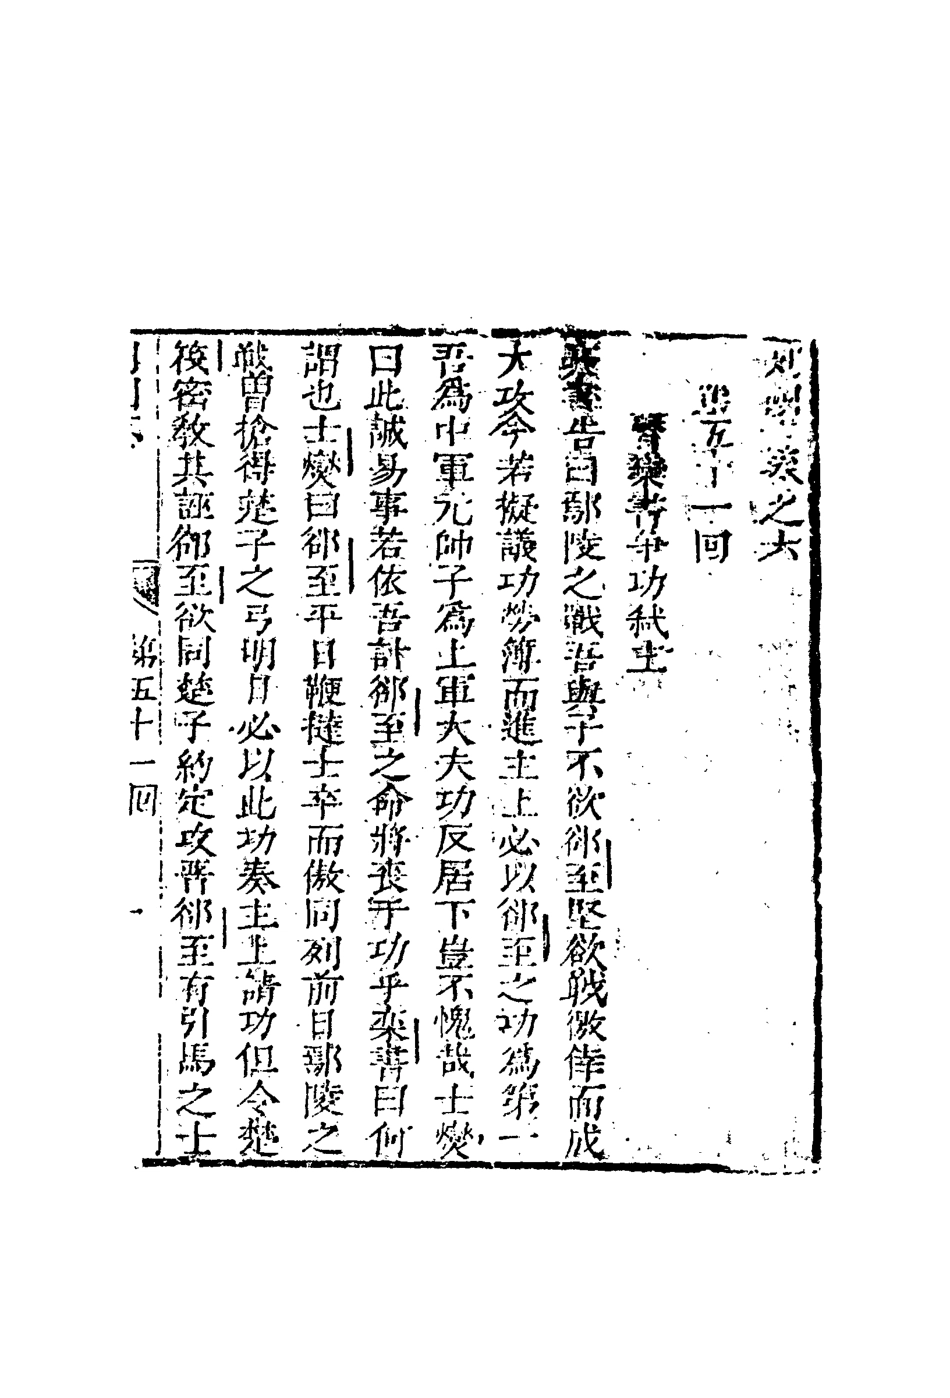 列國　卷之六
第五十一回
晉欒書爭功弒主
欒書告曰鄢陵之戰吾與子不欲郤至堅欲戰徼倖而成
大攻今若擬議功勞簿而進主上必以郤至之功爲第一
吾爲中軍元帥子爲上軍大夫功反居下豈不愧哉士燮
曰此誠易事若依吾計郤至之命將丧于功乎栾書曰何
謂也士燮曰郤至平日鞭撻士卒而傲同列前日鄢陵之
戰曾搶得楚子之弓明日必以此功奏主上請功但令楚
後密教其誣郤至欲同楚子約定攻晋郤至有引馬之士
第五十一回　一